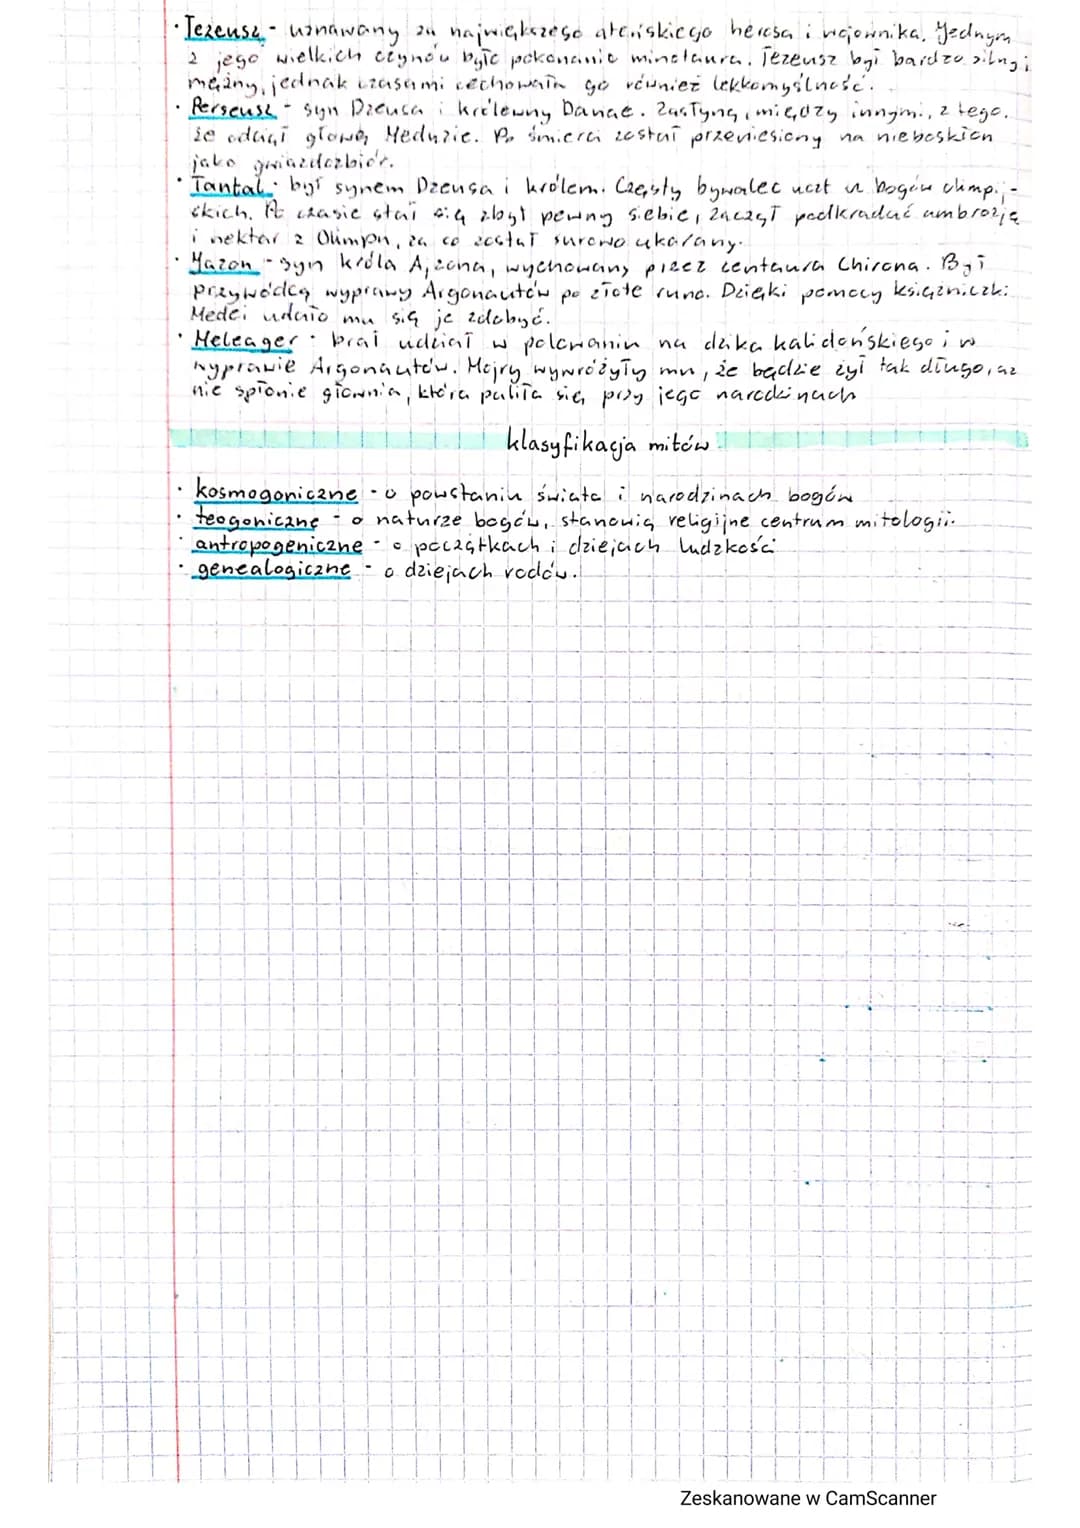 · Tezeusz - uznawany za największego ateńskiego herosa i wojownika. Jednym
z jego wielkich czynów było pokonanie minotaura. Tezeusz był bardzo silny i
mężny, jednak czasami cechowała go również lekkomyślność.
· Perseusz - syn Dzeusa i królewny Danae. Zasłynął, między innymi, z tego,
że odciął głowę Meduzie. Po śmierci został przeniesiony na nieboskłon
jako gwiazdozbiór.
· Tantal - był synem Dzeusa i królem. Częsty bywalec uczt u bogów olimpij-
skich. Po czasie stał się zbyt pewny siebie, zaczął podkradać ambrozję
i nektar z Olimpu, za co został surowo ukarany.
· Jazon - syn króla Ajzona, wychowany przez centaura Chirona. Był
przywódcą wyprawy Argonautów po złote runo. Dzięki pomocy księżniczki
Medei udało mu się je zdobyć.
· Meleager - brał udział w polowaniu na dzika kalidońskiego i w
wyprawie Argonautów. Mojry wywróżyły mu, że będzie żył tak długo, aż
nie spłonie głownia, która paliła się przy jego narodzinach
klasyfikacja mitów
· kosmogoniczne - o powstaniu świata i narodzinach bogów
· teogoniczne - o naturze bogów, stanowią religijne centrum mitologii.
· antropogeniczne - o początkach i dziejach ludzkości
· genealogiczne - o dziejach rodów.
Zeskanowane w CamScanner